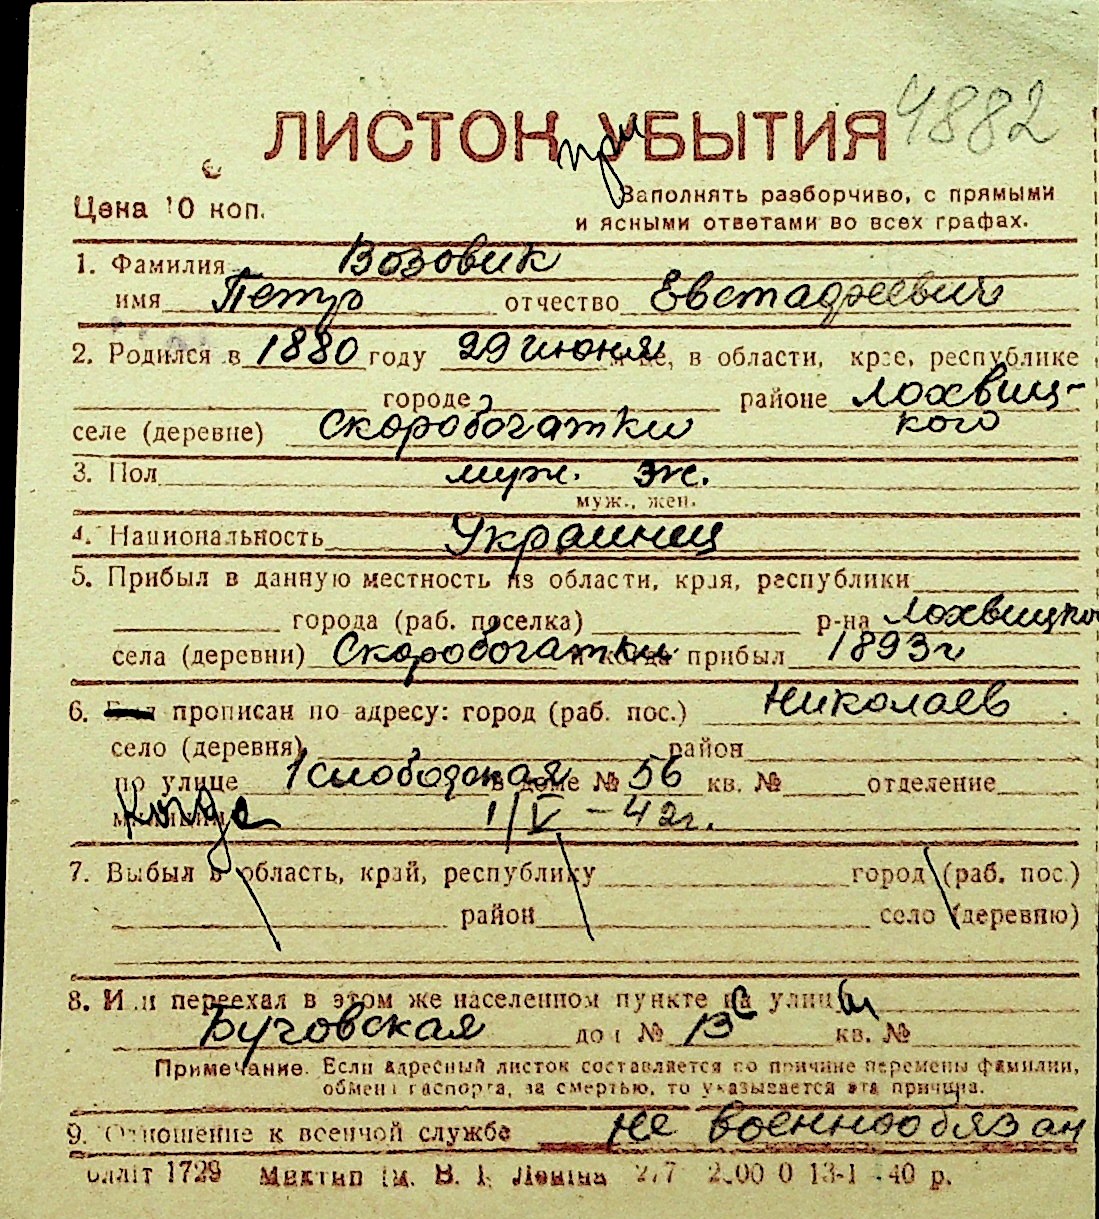 4882
ЛИСТОК при УБЫТИЯ
Цена 10 коп.
Заполнять разборчиво, с прямыми
и ясными ответами во всех графах.
1. Фамилия Возовик
имя Петр отчество Евстафеевич
2. Родился в 1880 году 29 июня м-це, в области, крае, республике
городе районе Лохвиц-
селе (деревне) Скоробогатки кого
3. Пол муж. эк.
муж., жен.
4. Национальность Украинец
5. Прибыл в данную местность из области, края, республики
города (раб. поселка) р-на Лохвицко
села (деревни) Скоробогатки и когда прибыл 1893 г
6. Был прописан по адресу: город (раб. пос.) Николаев
село (деревня) район
по улице 1 слободская в доме № 56 кв. № отделение
милиции Когда 1/V - 42 г.
7. Выбыл в область, край, республику город (раб. пос.)
район село (деревню)
8. Или переехал в этом же населенном пункте на с улицы
Буговская дом № 13 кв. №
Примечание. Если адресный листок составляется по причине перемены фамилии,
обмена паспорта, за смертью, то указывается эта причина.
9. Отношение к военной службе не военнообязан
Миктип ім. В. І. Леніна 40 р.